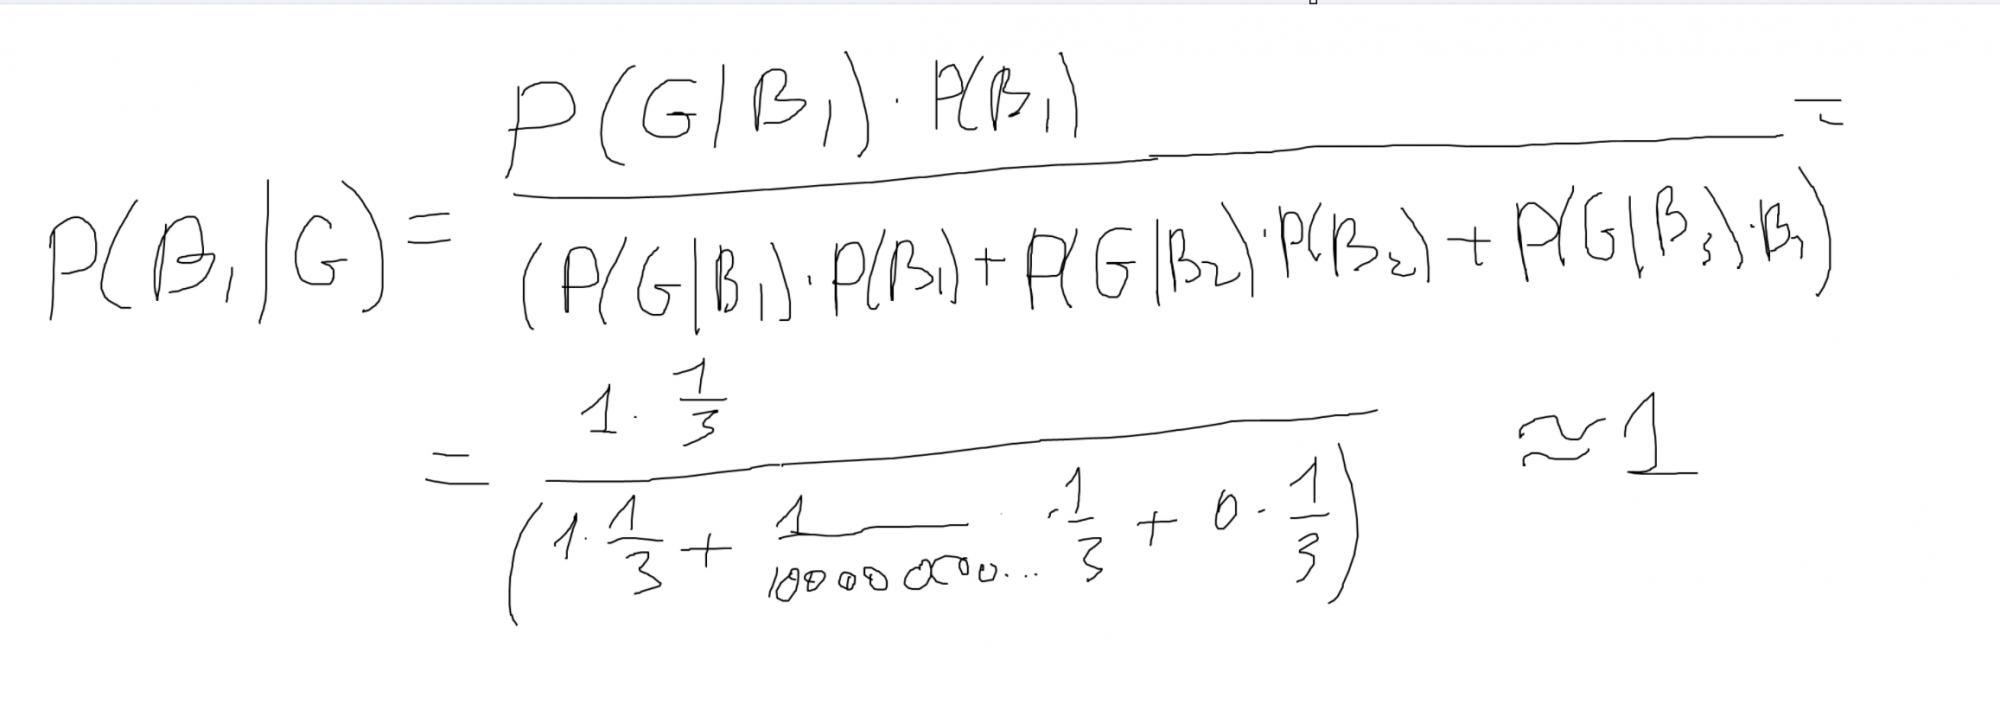 P(B₁|G) = P(G|B₁) · P(B₁) / (P(G|B₁) · P(B₁) + P(G|B₂) · P(B₂) + P(G|B₃) · B₃) =
= 1 · 1/3 / (1 · 1/3 + 1/10000000000... · 1/3 + 0 · 1/3) ≈ 1